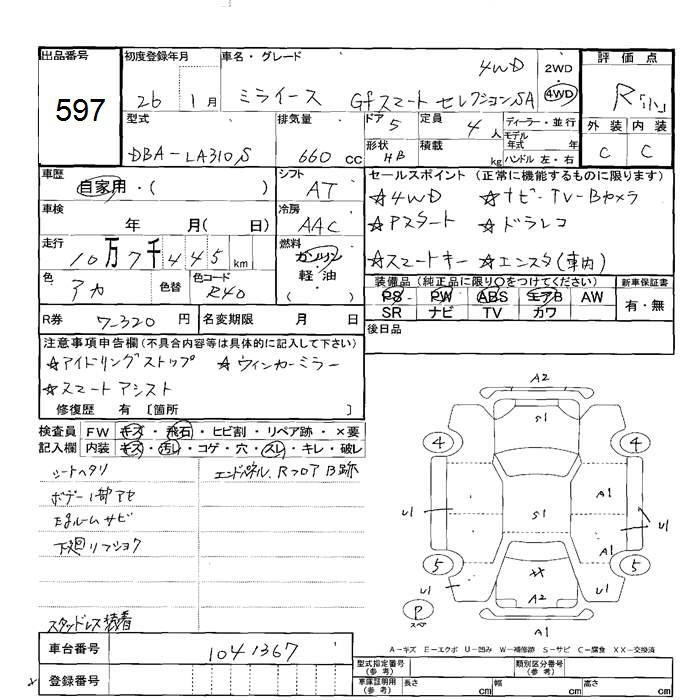 出品番号
597
初度登録年月
26 1月
車名・グレード
4WD
ミライース Gfスマート セレクションSA
2WD
4WD
評価点
R
型式
DBA-LA310S
排気量
660 cc
ドア 5
形状 HB
定員 4 人
積載 kg
ディーラー・並行
モデル年式 年
ハンドル 左・右
外装 内装
C C
車歴
自家用・( )
シフト
AT
車検
年 月( 日)
冷房
AAC
走行
10万7千445 km
燃料
ガソリン
軽・油
( )
色
アカ
色替
色コード
R40
R券 7320 円
名変期限 月 日
セールスポイント(正常に機能するものに限ります)
☆4WD ☆ナビ・TV・Bカメラ
☆Aスタート ☆ドラレコ
☆スマートキー ☆エンスタ(車内)
装備品(純正品に限り○をつけてください)
PS PW ABS エアB AW
SR ナビ TV カワ
新車保証書
有・無
後日品
注意事項申告欄(不具合内容等は具体的に記入して下さい)
☆アイドリングストップ ☆ウィンカーミラー
☆スマートアシスト
修復歴 有 〔箇所 〕
検査員記入欄
FW キズ・飛石・ヒビ割・リペア跡・×要
内装 キズ・汚レ・コゲ・穴・スレ・キレ・破レ
シートヘタリ
エンドパネル、RフロアB跡
ボデー1部アセ
E/gルームサビ
下廻リフショク
スタッドレス装着
車台番号 1041367
登録番号
A2
S1
4 4
A1
U1
S1
U1
A1
5 5
XX
U1
A2
U1
P
スペ
A1
A-キズ E-エクボ U-凹み W-補修跡 S-サビ C-腐食 XX-交換済
型式指定番号(参考)
類別区分番号(参考)
車庫証明用(参考) 長さ cm 幅 cm 高さ cm